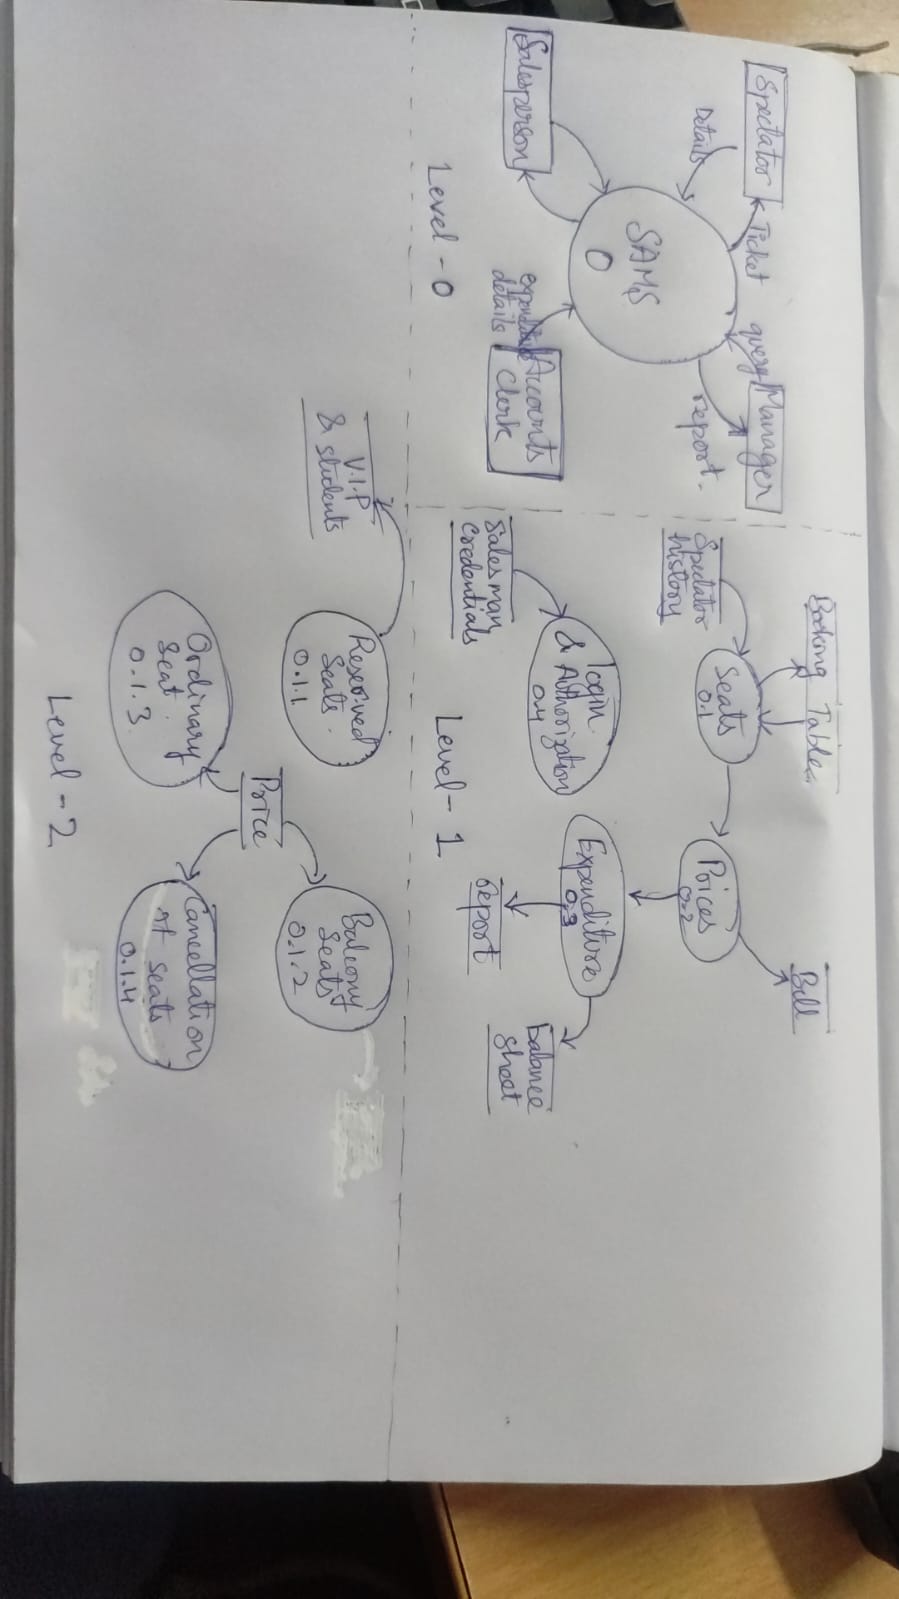 Spectator
Ticket
query
Manager
Details
report.
SAMS
0
Salesperson
expenditure
details
Accounts
Clerk
Level - 0
Booking Table
Bill
Seats
0.1
Prices
0.2
Spectator
history
login
& Authorization
0.4
Expenditure
0.3
Salesman
Credentials
report
balance
sheet
Level - 1
V.I.P
& students
Reserved
Seats.
0.1.1
Balcony
Seats
0.1.2
Price
Ordinary
Seat.
0.1.3
Cancellation
of seats
0.1.4
Level - 2